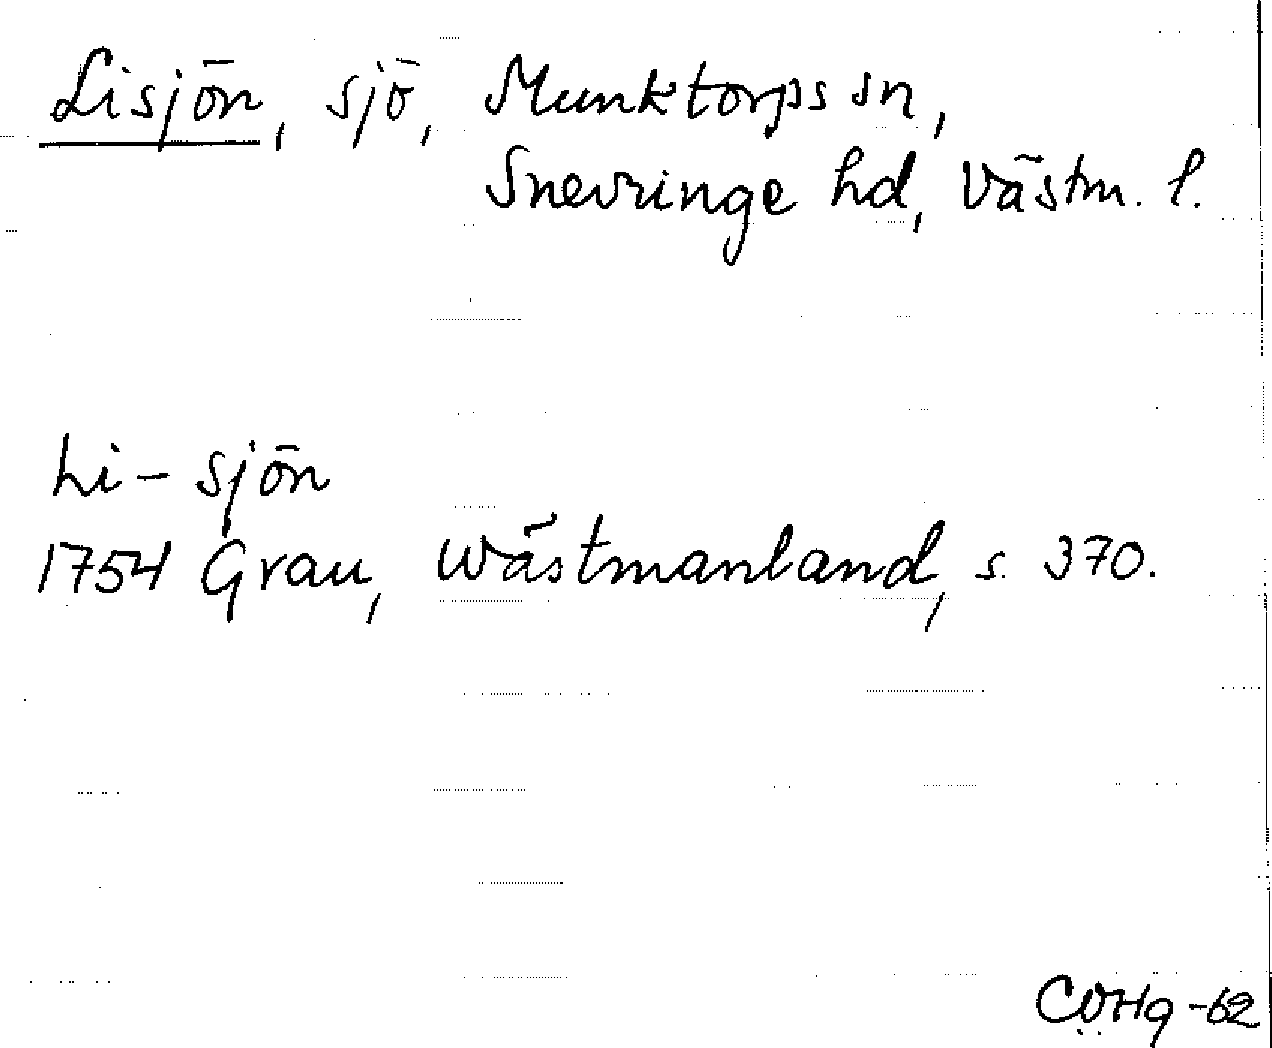 Lisjön, sjö, Munktorps sn,
Snevringe hd, Västm. l.
Li-sjön
1754 Grau, Wästmanland, s. 370.
CÖHg-62